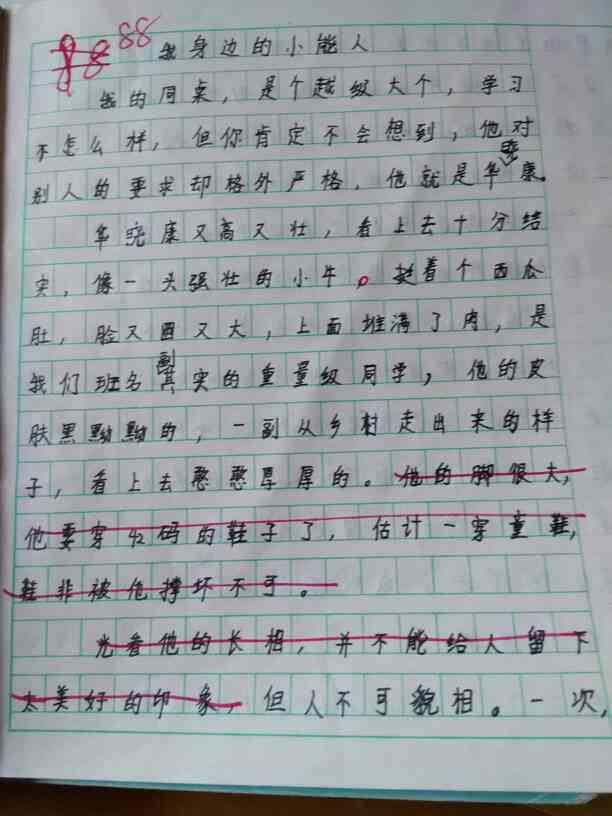 88
88
我身边的小能人
我的同桌，是个越级大个，学习
不怎么样，但你肯定不会想到，他对
别人的要求却格外严格，他就是华骁康。
华骁康又高又壮，看上去十分结
实，像一头强壮的小牛。挺着个西瓜
肚，脸又圆又大，上面堆满了肉，是
我们班名副其实的重量级同学，他的皮
肤黑黝黝的，一副从乡村走出来的样
子，看上去憨憨厚厚的。他的脚很大，
他要穿42码的鞋子了，估计一穿童鞋，
鞋非被他撑坏不可。
光看他的长相，并不能给人留下
太美好的印象，但人不可貌相。一次，